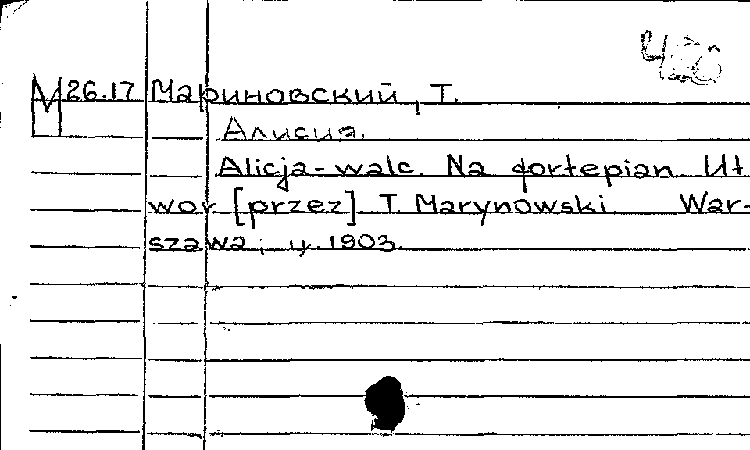 420
М 26.17 Мариновский, Т.
Алисия.
Alicja-walc. Na fortepian. Ut
wor [przez] T. Marynowski War-
szawa; ц. 1903.